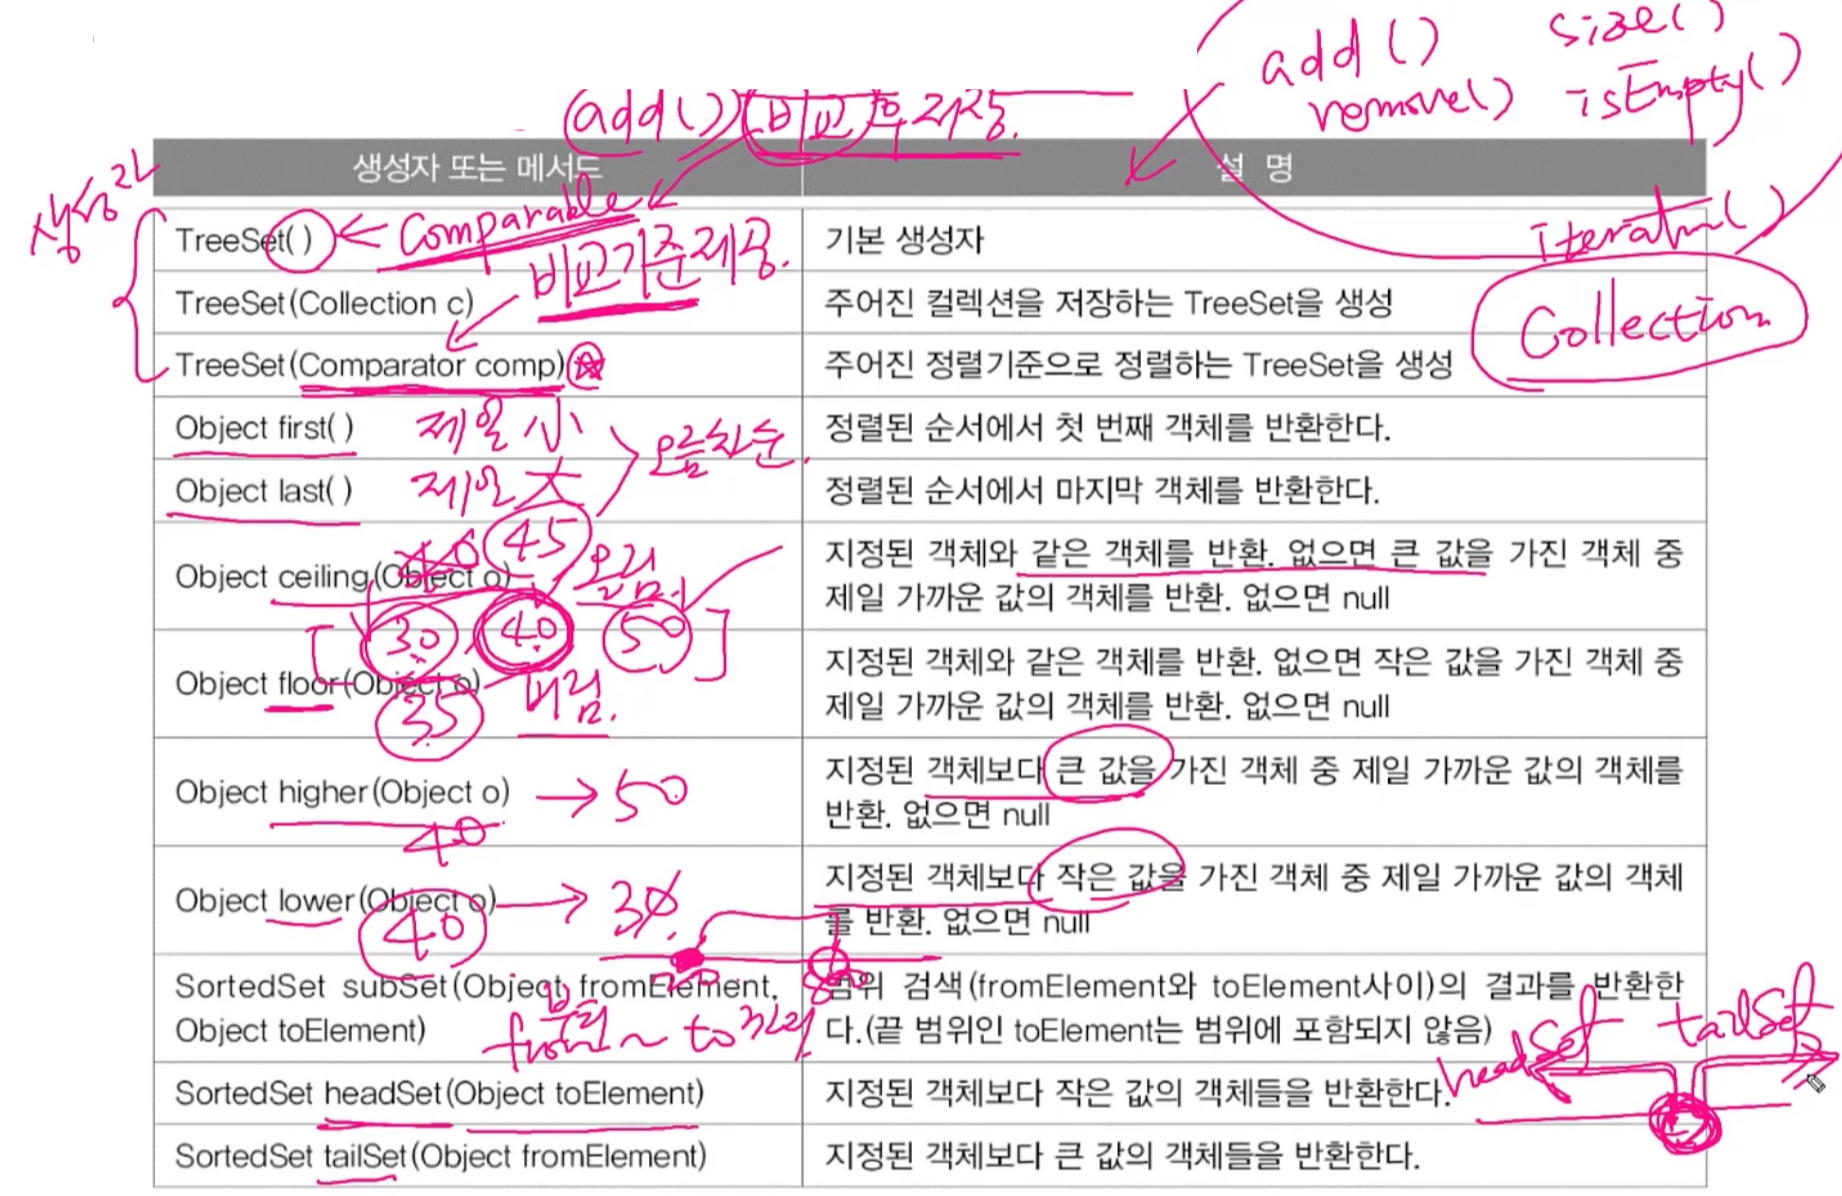 add() size()
remove() isEmpty()
add() 비교 후 저장.
생성자 또는 메서드 설 명
생성자
TreeSet( ) ← Comparable 기본 생성자 iterator()
비교기준제공.
TreeSet(Collection c) 주어진 컬렉션을 저장하는 TreeSet을 생성 Collection
TreeSet(Comparator comp) 주어진 정렬기준으로 정렬하는 TreeSet을 생성
Object first( ) 제일 小 정렬된 순서에서 첫 번째 객체를 반환한다.
오름차순.
Object last( ) 제일 大 정렬된 순서에서 마지막 객체를 반환한다.
45
Object ceiling(Object o) 올림. 지정된 객체와 같은 객체를 반환. 없으면 큰 값을 가진 객체 중
제일 가까운 값의 객체를 반환. 없으면 null
[ 30 40 50 ]
Object floor(Object o) 버림. 지정된 객체와 같은 객체를 반환. 없으면 작은 값을 가진 객체 중
제일 가까운 값의 객체를 반환. 없으면 null
35
Object higher(Object o) → 50 지정된 객체보다 큰 값을 가진 객체 중 제일 가까운 값의 객체를
반환. 없으면 null
40
Object lower(Object o) → 30 지정된 객체보다 작은 값을 가진 객체 중 제일 가까운 값의 객체
를 반환. 없으면 null
40
20 80
SortedSet subSet(Object fromElement, 범위 검색(fromElement와 toElement사이)의 결과를 반환한
Object toElement) 다.(끝 범위인 toElement는 범위에 포함되지 않음)
from ~ to
headSet tailSet
SortedSet headSet(Object toElement) 지정된 객체보다 작은 값의 객체들을 반환한다.
SortedSet tailSet(Object fromElement) 지정된 객체보다 큰 값의 객체들을 반환한다.